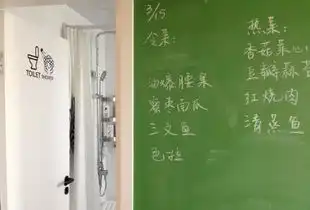 TOILET SHOWER
3/15
冷菜:
油爆腰果
蜜枣南瓜
三文鱼
色拉
热菜:
香菇菜心
豆瓣蒜
红烧肉
清蒸鱼